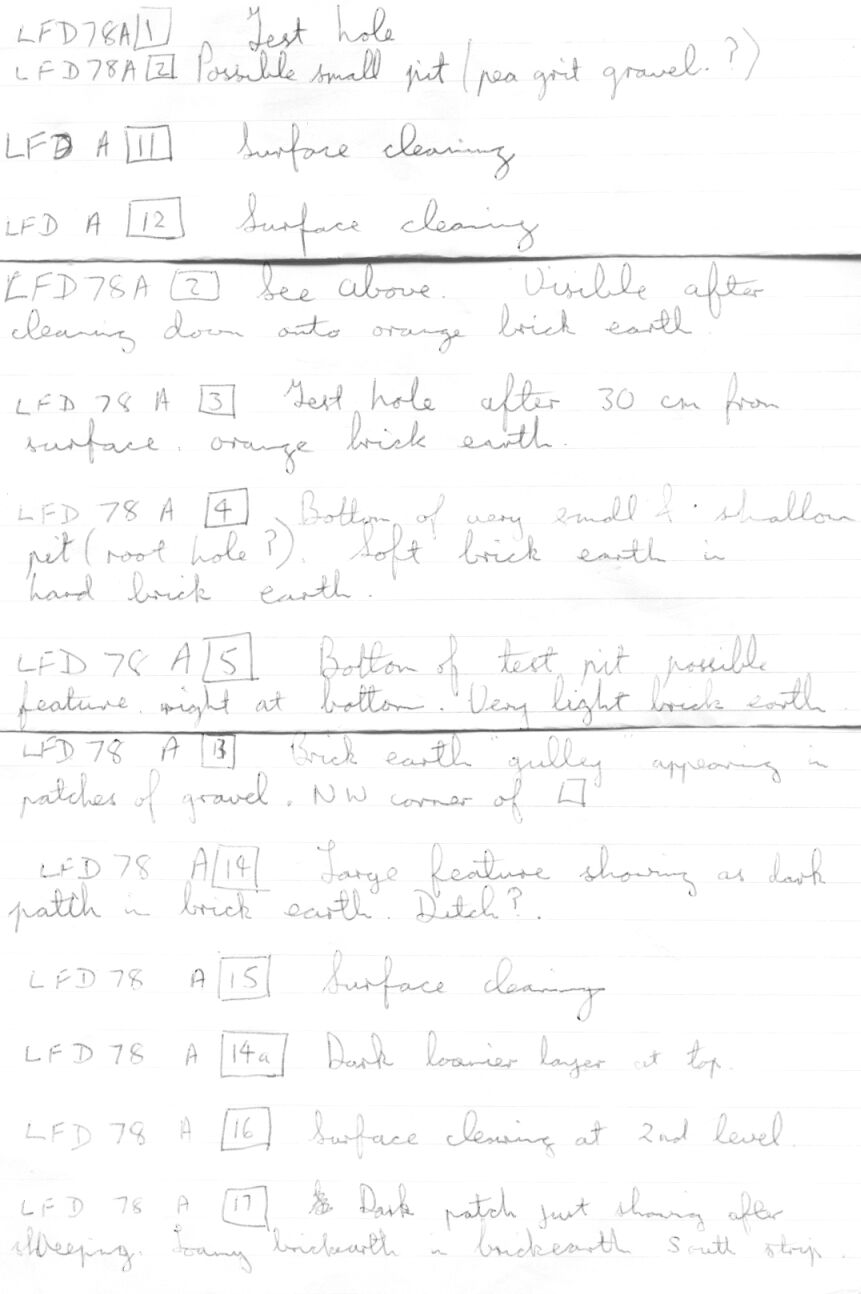 LFD78A 1 Test hole
LFD78A 2 Possible small pit (pea grit gravel.?)
LFD A 11 Surface cleaning
LFD A 12 Surface cleaning
LFD78A 2 See above. Visible after
cleaning down onto orange brick earth
LFD 78 A 3 Test hole after 30 cm from
surface. orange brick earth.
LFD 78 A 4 Bottom of very small & shallow
pit (root hole?). Soft brick earth in
hard brick earth.
LFD 78 A 5 Bottom of test pit possible
feature right at bottom. Very light brick earth
LFD 78 A 13 Brick earth "gulley" appearing in
patches of gravel. NW corner of □
LFD 78 A 14 Large feature showing as dark
patch in brick earth. Ditch?.
LFD 78 A 15 Surface cleaning
LFD 78 A 14a Dark loamier layer at top.
LFD 78 A 16 Surface cleaning at 2nd level.
LFD 78 A 17 Dark patch just showing after
sweeping. Loamy brickearth in brickearth South strip.